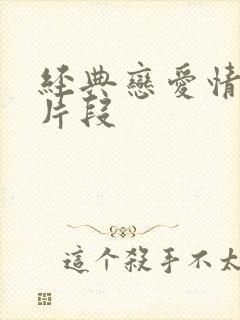 經典戀愛情
片段
這个殺手不太